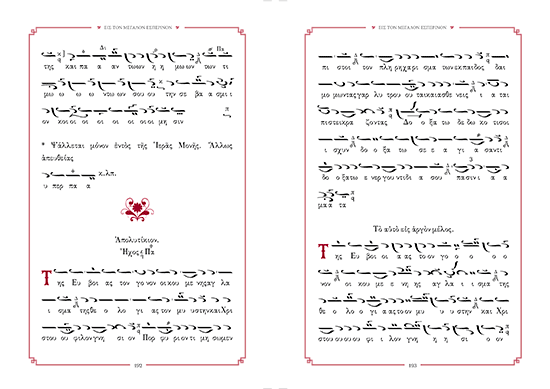 ΕΙΣ ΤΟΝ ΜΕΓΑΛΟΝ ΕΣΠΕΡΙΝΟΝ
Δι Πα
της και πα α αν των η η μω ων των τι
μω ω ω ω ντων σου ου την σε βα α σμι ι
ον κοι οι οι οι οι οι οι μη σιν
* Ψάλλεται μόνον ἐντὸς τῆς Ἱερᾶς Μονῆς. Ἄλλως
ἀπευθείας
κ.λπ.
υ περ πα α
Ἀπολυτίκιον.
Ἦχος Πα
Της Ευ βοι ας τον γο νον οι κου με νης αγ λα
ι σμα της θε ο λο γι ας τον μυ υ στην και Χρι
στου ου φι λον γνη σι ον Πορ φυ ρι ον τι μη σω μεν
192
ΕΙΣ ΤΟΝ ΜΕΓΑΛΟΝ ΕΣΠΕΡΙΝΟΝ
πι στοι τον πλη ρη χα ρι σμα των εκ παι δος δαι
μο μων τας γαρ λυ τρου ου ται και ασθε νεις ι α ται
πι στει κρα ζον τας Δο ο ξα τω δε δω κο τι σοι
ι σχυν δο ο ξα τω σε α γι α σαν τι
δο ο ξα τω ε νερ γουν τι δι α σου πα σιν ι α α
μα α τα
Τὸ αὐτὸ εἰς ἀργὸν μέλος.
Της Ευ βοι α ας το ον γο ο ο ο ο
νον οι κου με ε νης η αγ λα ι ι σμα της
θε ο λο ο γι ι ας το ον μυ υ υ υ στην και Χρι
στου ου ου ου φι ι λον γνη η η σι ι ον
193